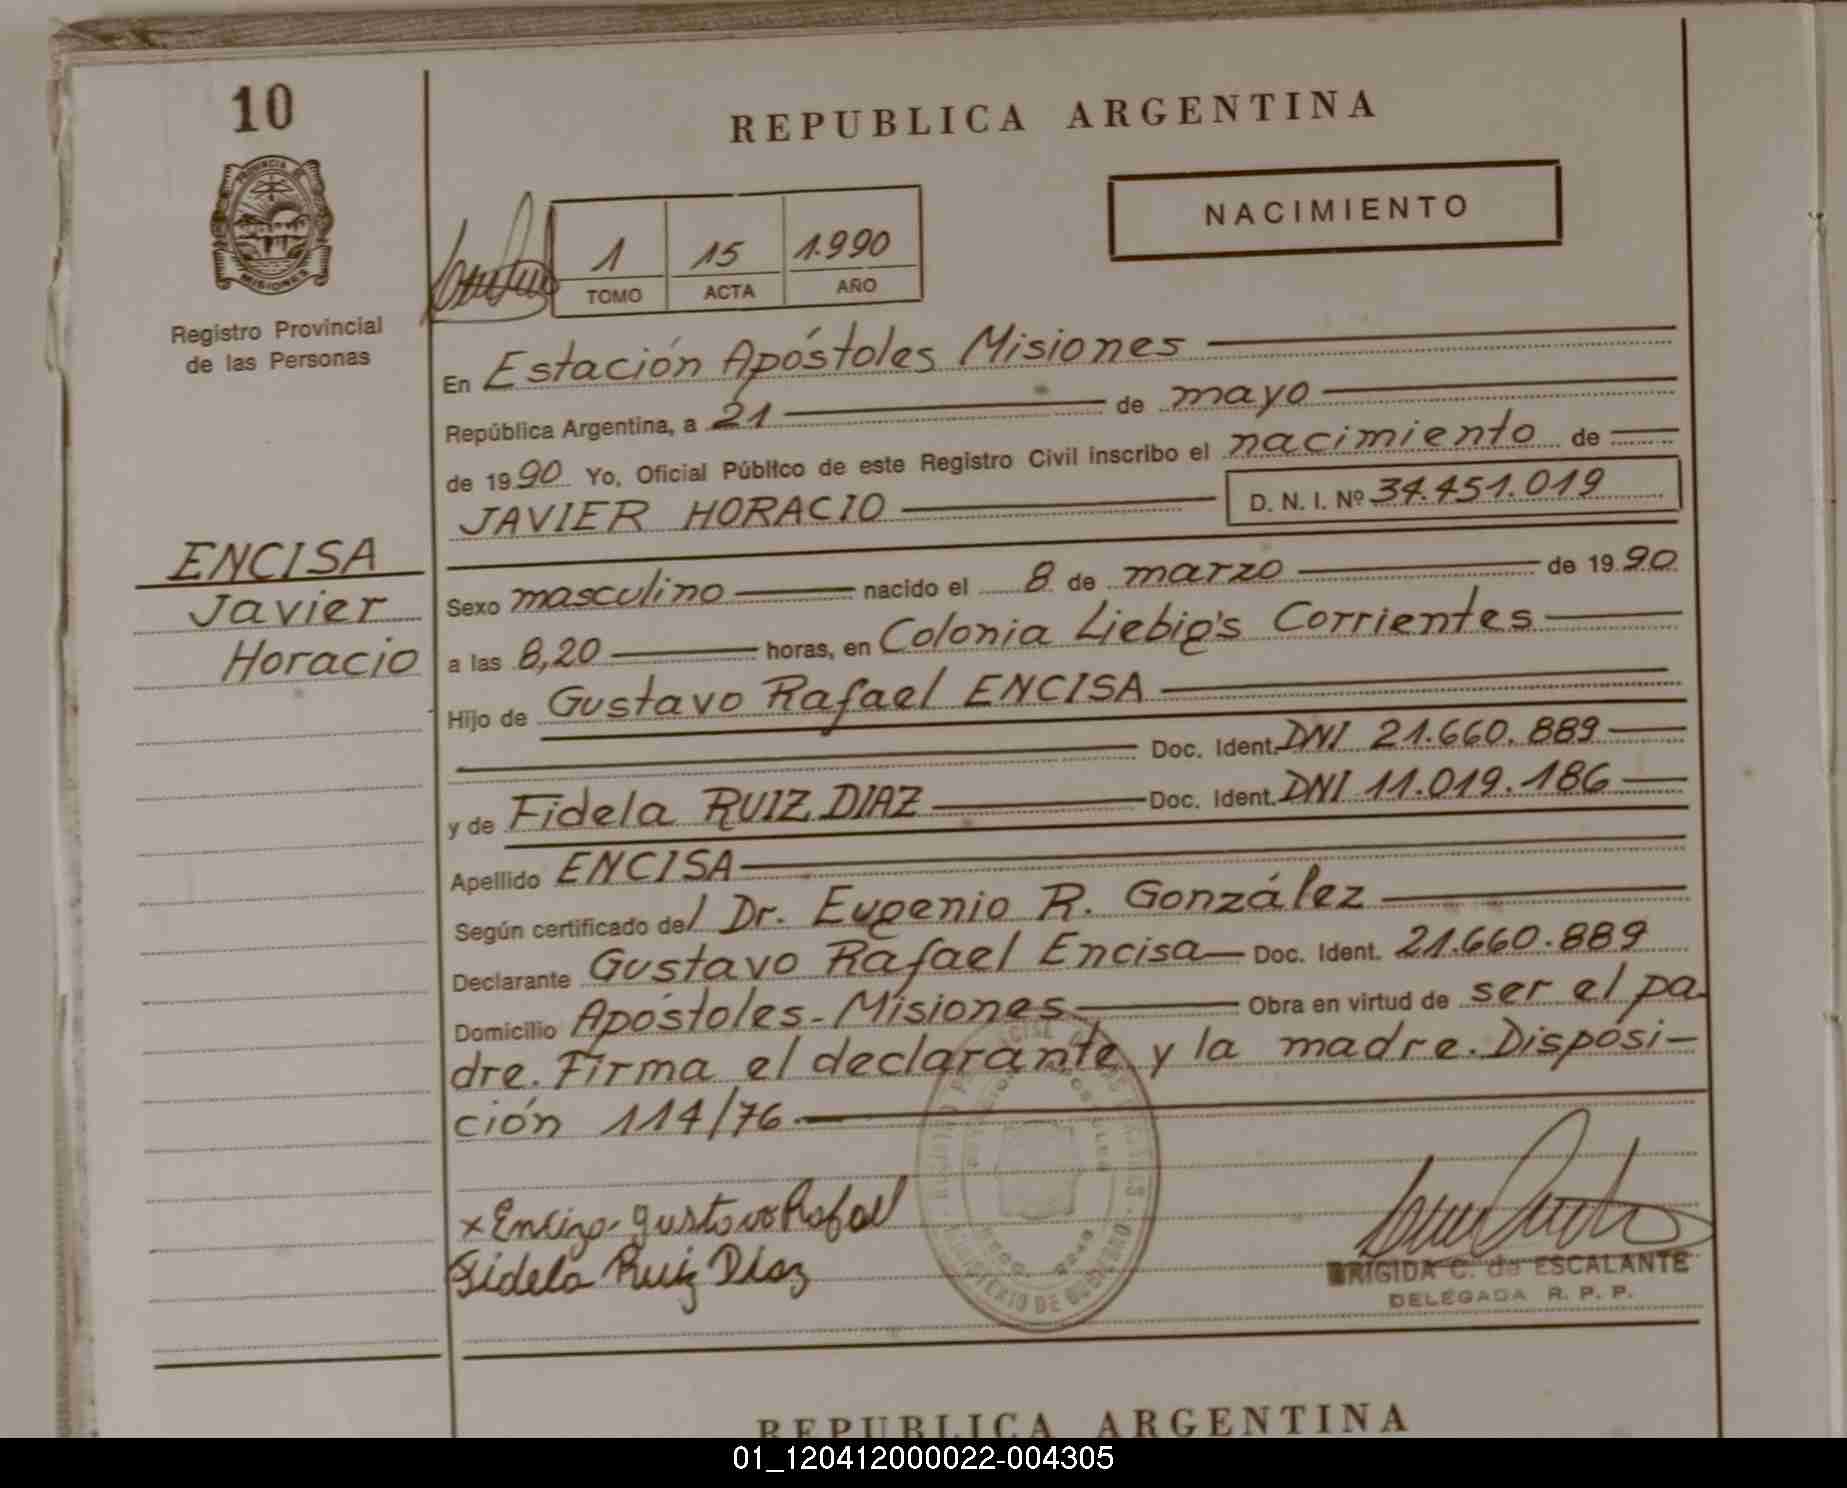 10
REPUBLICA ARGENTINA
PROVINCIA DE
MISIONES
NACIMIENTO
1 15 1.990
TOMO ACTA AÑO
Registro Provincial
de las Personas
En Estación Apóstoles Misiones
República Argentina, a 21 de mayo
de 1990 Yo, Oficial Público de este Registro Civil inscribo el nacimiento de
JAVIER HORACIO D. N. I. Nº 34.451.019
ENCISA
Javier
Horacio
Sexo masculino nacido el 8 de marzo de 1990
a las 8,20 horas, en Colonia Liebig's Corrientes
Hijo de Gustavo Rafael ENCISA
Doc. Ident. DNI 21.660.889
y de Fidela RUIZ DIAZ Doc. Ident. DNI 11.019.186
Apellido ENCISA
Según certificado del Dr. Eugenio R. González
Declarante Gustavo Rafael Encisa Doc. Ident. 21.660.889
Domicilio Apóstoles-Misiones Obra en virtud de ser el pa
dre. Firma el declarante y la madre. Disposi-
ción 114/76.
x Enciza gustavo Rafael
Fidela Ruiz Diaz
MINISTERIO DE GOBIERNO
BRIGIDA C. de ESCALANTE
DELEGADA R. P. P.
REPUBLICA ARGENTINA
01_120412000022-004305